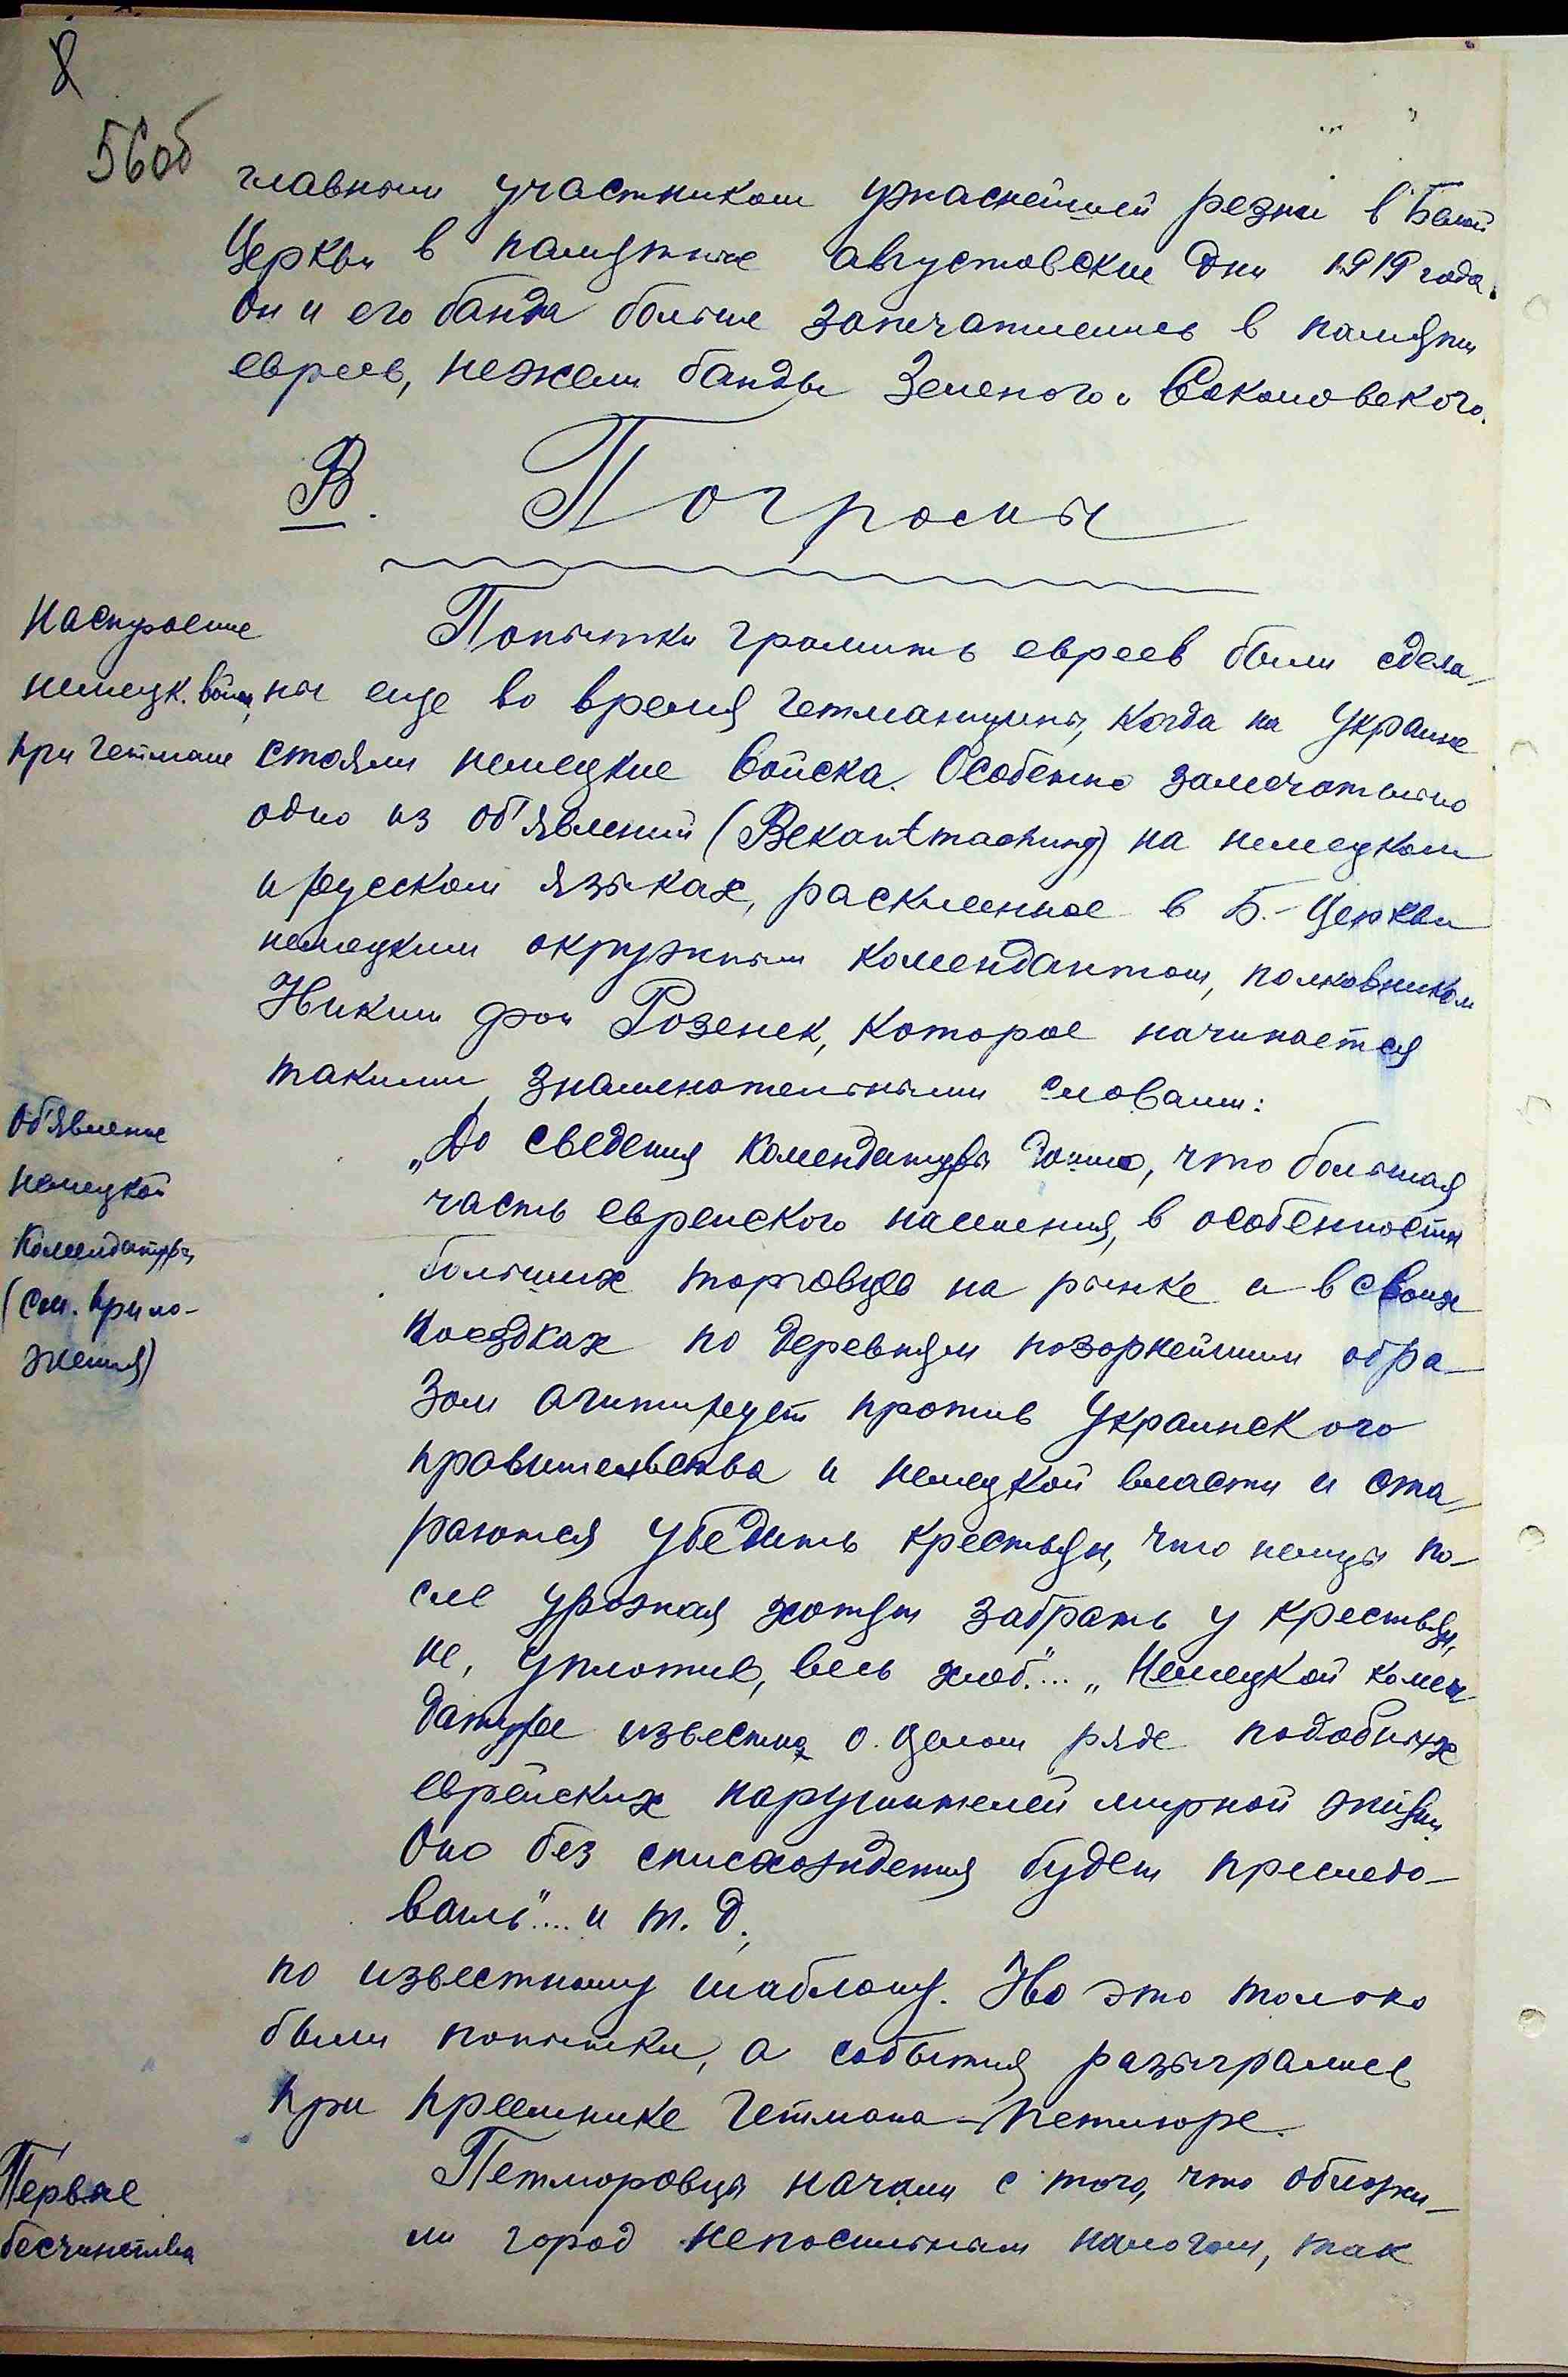 8
56об
главным участником ужаснейшей резни в Белой
Церкви в памятные августовские дни 1919 года.
Он и его банда больше запечатлелись в памяти
евреев, нежели банды Зеленого и Соколовского.
В. Погромы
Настроение
немецк. войск
при гетмане
Попытки громить евреев были сдела-
ны еще во время гетманщины, когда на Украине
стояли немецкие войска. Особенно замечательно
одно из об'явлений (Bekantmachung) на немецком
и русском языках, расклеенное в Б.-Церкви
немецким окружным комендантом, полковником
фон Розенек, которое начинается
такими знаменательными словами:
Об'явление
немецкой
комендатуры
(см. прило-
жения)
„До сведения комендатуры дошло, что большая
часть еврейского населения, в особенности
больших торговцев на рынке и в своих
поездках по деревням позорнейшим обра-
зом агитирует против Украинского
правительства и немецкой власти и ста-
раются убедить крестьян, что немцы по-
сле урожая хотят забрать у крестьян,
не уплотив, весь хлеб."... „Немецкой комен-
датуре известно о целом ряде подобных
еврейских нарушителей мирной жизни.
Оно без снисхождения будет преследо-
вать".... и т. д.,
по известному шаблону. Но это только
были попытки, а события разыгрались
при преемнике гетмана - Петлюре.
Первые
бесчинства
Петлюровцы начали с того, что обложи-
ли город непосильным налогом, так